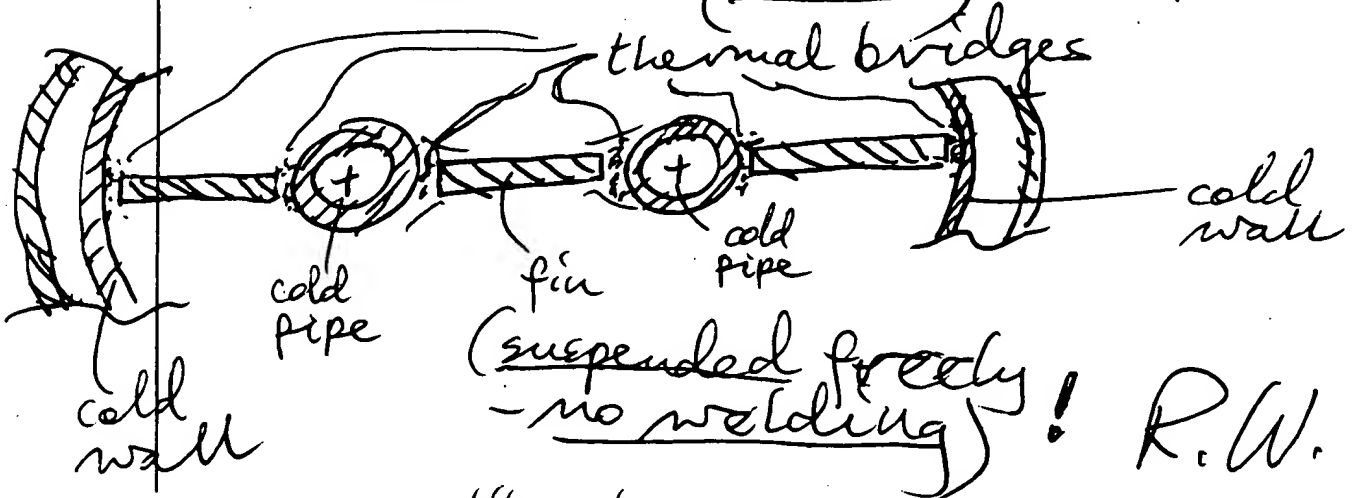 thermal bridges
cold
wall
cold
pipe
fin
cold
pipe
cold
wall
(suspended freely
- no welding)! R.W.